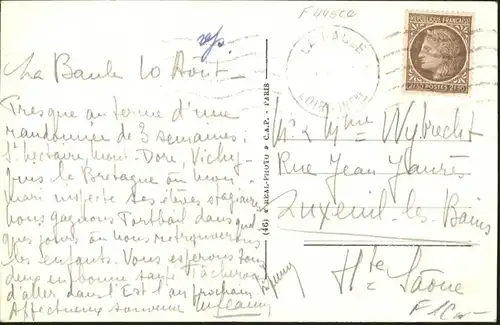 F 445ca
rep.
La Baule 10 Août –
Presque au terme d'une
randonnée de 3 semaines :
St Nectaire, Mont-Dore, Vichy
puis la Bretagne où mon
mari inspecte ses élèves stagiaires
nous gagnons Portbail dans quel
que jours où nous retrouverons
les enfants. Vous espérons tous
deux en bonne santé. Tâcherons
d'aller dans l'Est l'an prochain
Affectueux souvenir
(46) ★ REAL-PHOTO ★ C.A.P. - PARIS
LA BAULE
LOIRE INFRE
RÉPUBLIQUE FRANÇAISE
2F50 POSTES 2F50
Mr & Mme Wybrecht
Rue Jean Jaurès
Luxeuil-les-Bains
Hte Saône